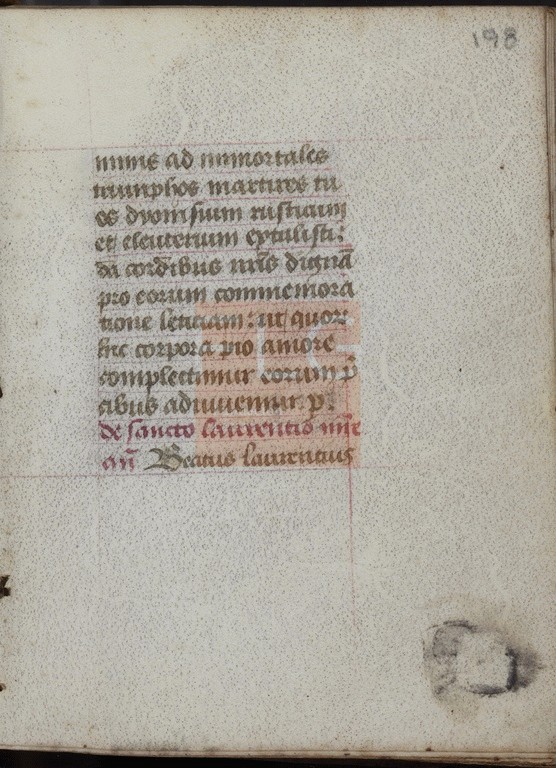 198
nunc ad immortales
triumphos martires tu
os dyonisium rusticum
et eleuterium extulisti:
da cordibus nr̄is dignā
pro eorum commemora
tione leticiam: ut quor
hic corpora pio amore
complectimur eorum p̄
cibus adiuvemur. p.
de sancto laurentio
an̄ Beatus laurentius